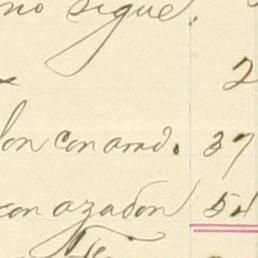 mo sigue.
2
lon con arad. 37
con azadon 54